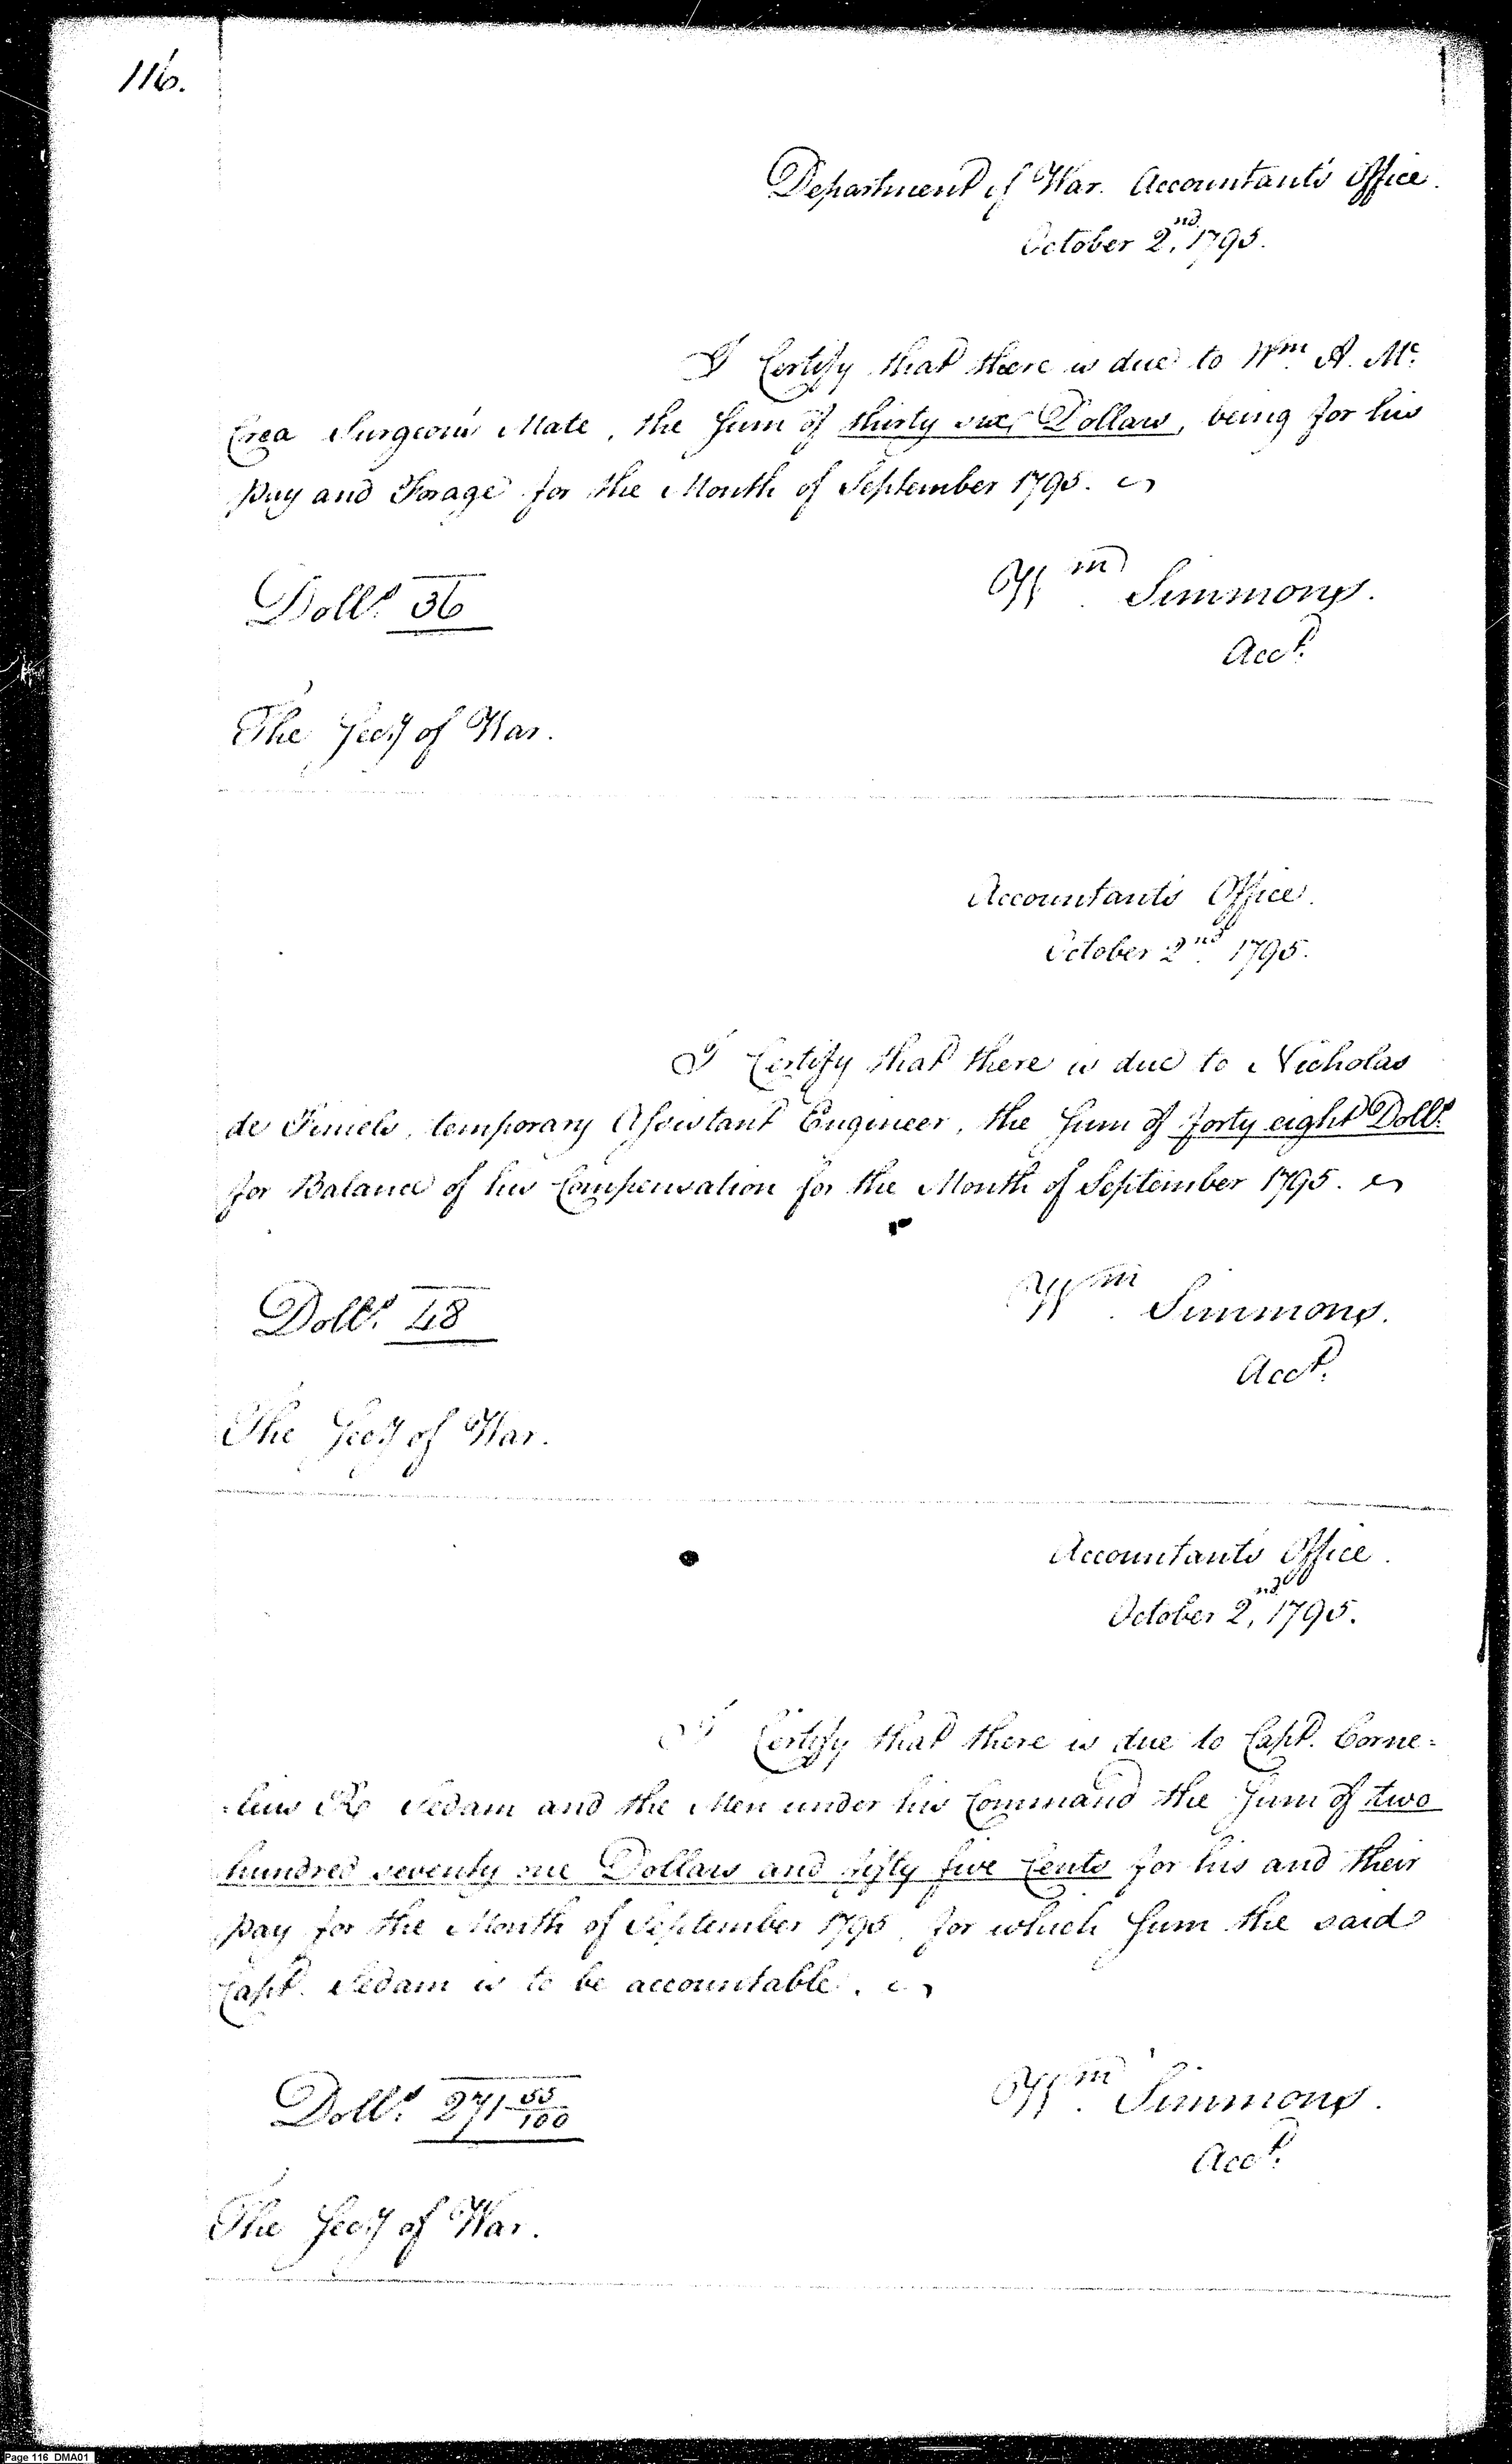 116.
Department of War. Accountant's Office.
October 2nd, 1795.
I Certify that there is due to Wm A. Mc.
Crea Surgeon's Mate, the Sum of thirty six Dollars, being for his
pay and Forage for the Month of September 1795.
Dolls. 36
Wm Simmons.
Acct.
The Secy of War.
Accountant's Office.
October 2nd 1795.
I Certify that there is due to Nicholas
de Finiels, temporary Assistant Engineer, the Sum of forty eight Dolls.
for Balance of his Compensation for the Month of September 1795.
Dolls. 48
Wm. Simmons.
Acct.
The Secy of War.
Accountant's Office.
October 2nd, 1795.
I Certify that there is due to Capt. Corne=
=lius R Sedam and the Men under his Command the Sum of two
hundred seventy one Dollars and fifty five Cents for his and their
pay for the Month of September 1795, for which Sum the said
Capt. Sedam is to be accountable.
Dolls. 271 55/100
Wm. Simmons.
Acct.
The Secy of War.
Page 116 DMA01